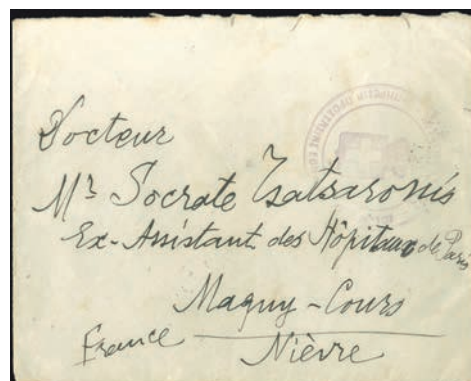 Docteur
Mr Socrate Tsatsaronis
Ex-Assistant des Hôpitaux de Paris
Magny-Cours
France
Nièvre